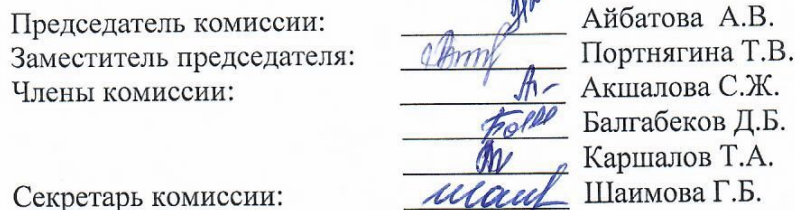 Председатель комиссии: Айбатова А.В.
Заместитель председателя: Портнягина Т.В.
Члены комиссии: Акшалова С.Ж.
Балгабеков Д.Б.
Каршалов Т.А.
Секретарь комиссии: Шаимова Г.Б.